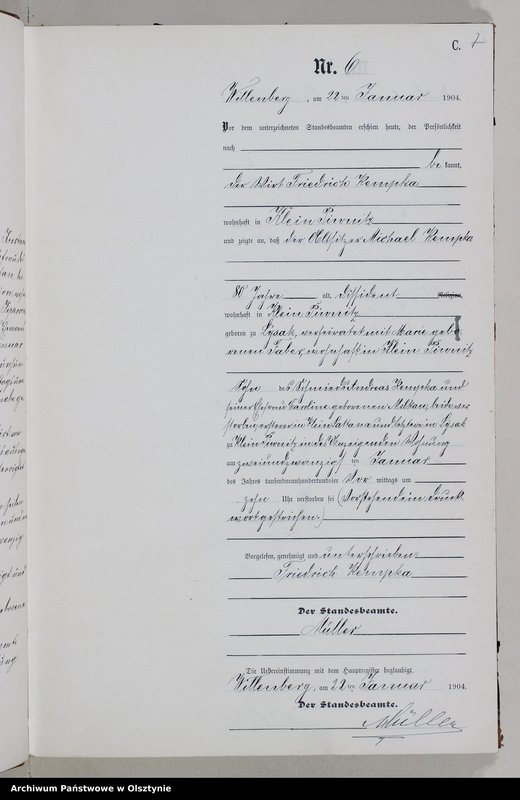 C. 7
Nr. 6
Willenberg, am 22 ten Januar 1904.
Vor dem unterzeichneten Standesbeamten erschien heute, der Persönlichkeit
nach
be kannt,
der Wirt Friedrich Kempka
wohnhaft in Klein Piwnitz
und zeigte an, daß der Altsitzer Michael Kempka
80 Jahre alt, Dissident Religion,
wohnhaft in Klein Piwnitz
geboren zu Lysak, verheiratet mit Marie gebo-
renen Faber, wohnhaft in Klein Piwnitz
Sohn des Schmieds Andreas Kempka und
seiner Ehefrau Caroline geborenen, beide ver-
storben, ersterer in Klein Lattana und letztere in Lysak
zu Klein Piwnitz in des Anzeigenden Wohnung
am zweiundzwanzigsten Januar
des Jahres tausendneunhundertundvier Vor mittags um
zehn Uhr verstorben sei (Vorstehend ein Druck-
wort gestrichen.)
Vorgelesen, genehmigt und unterschrieben:
Friedrich Kempka
Der Standesbeamte.
Müller
Die Uebereinstimmung mit dem Hauptregister beglaubigt.
Willenberg, am 22 ten Januar 1904.
Der Standesbeamte.
Müller
Archiwum Państwowe w Olsztynie